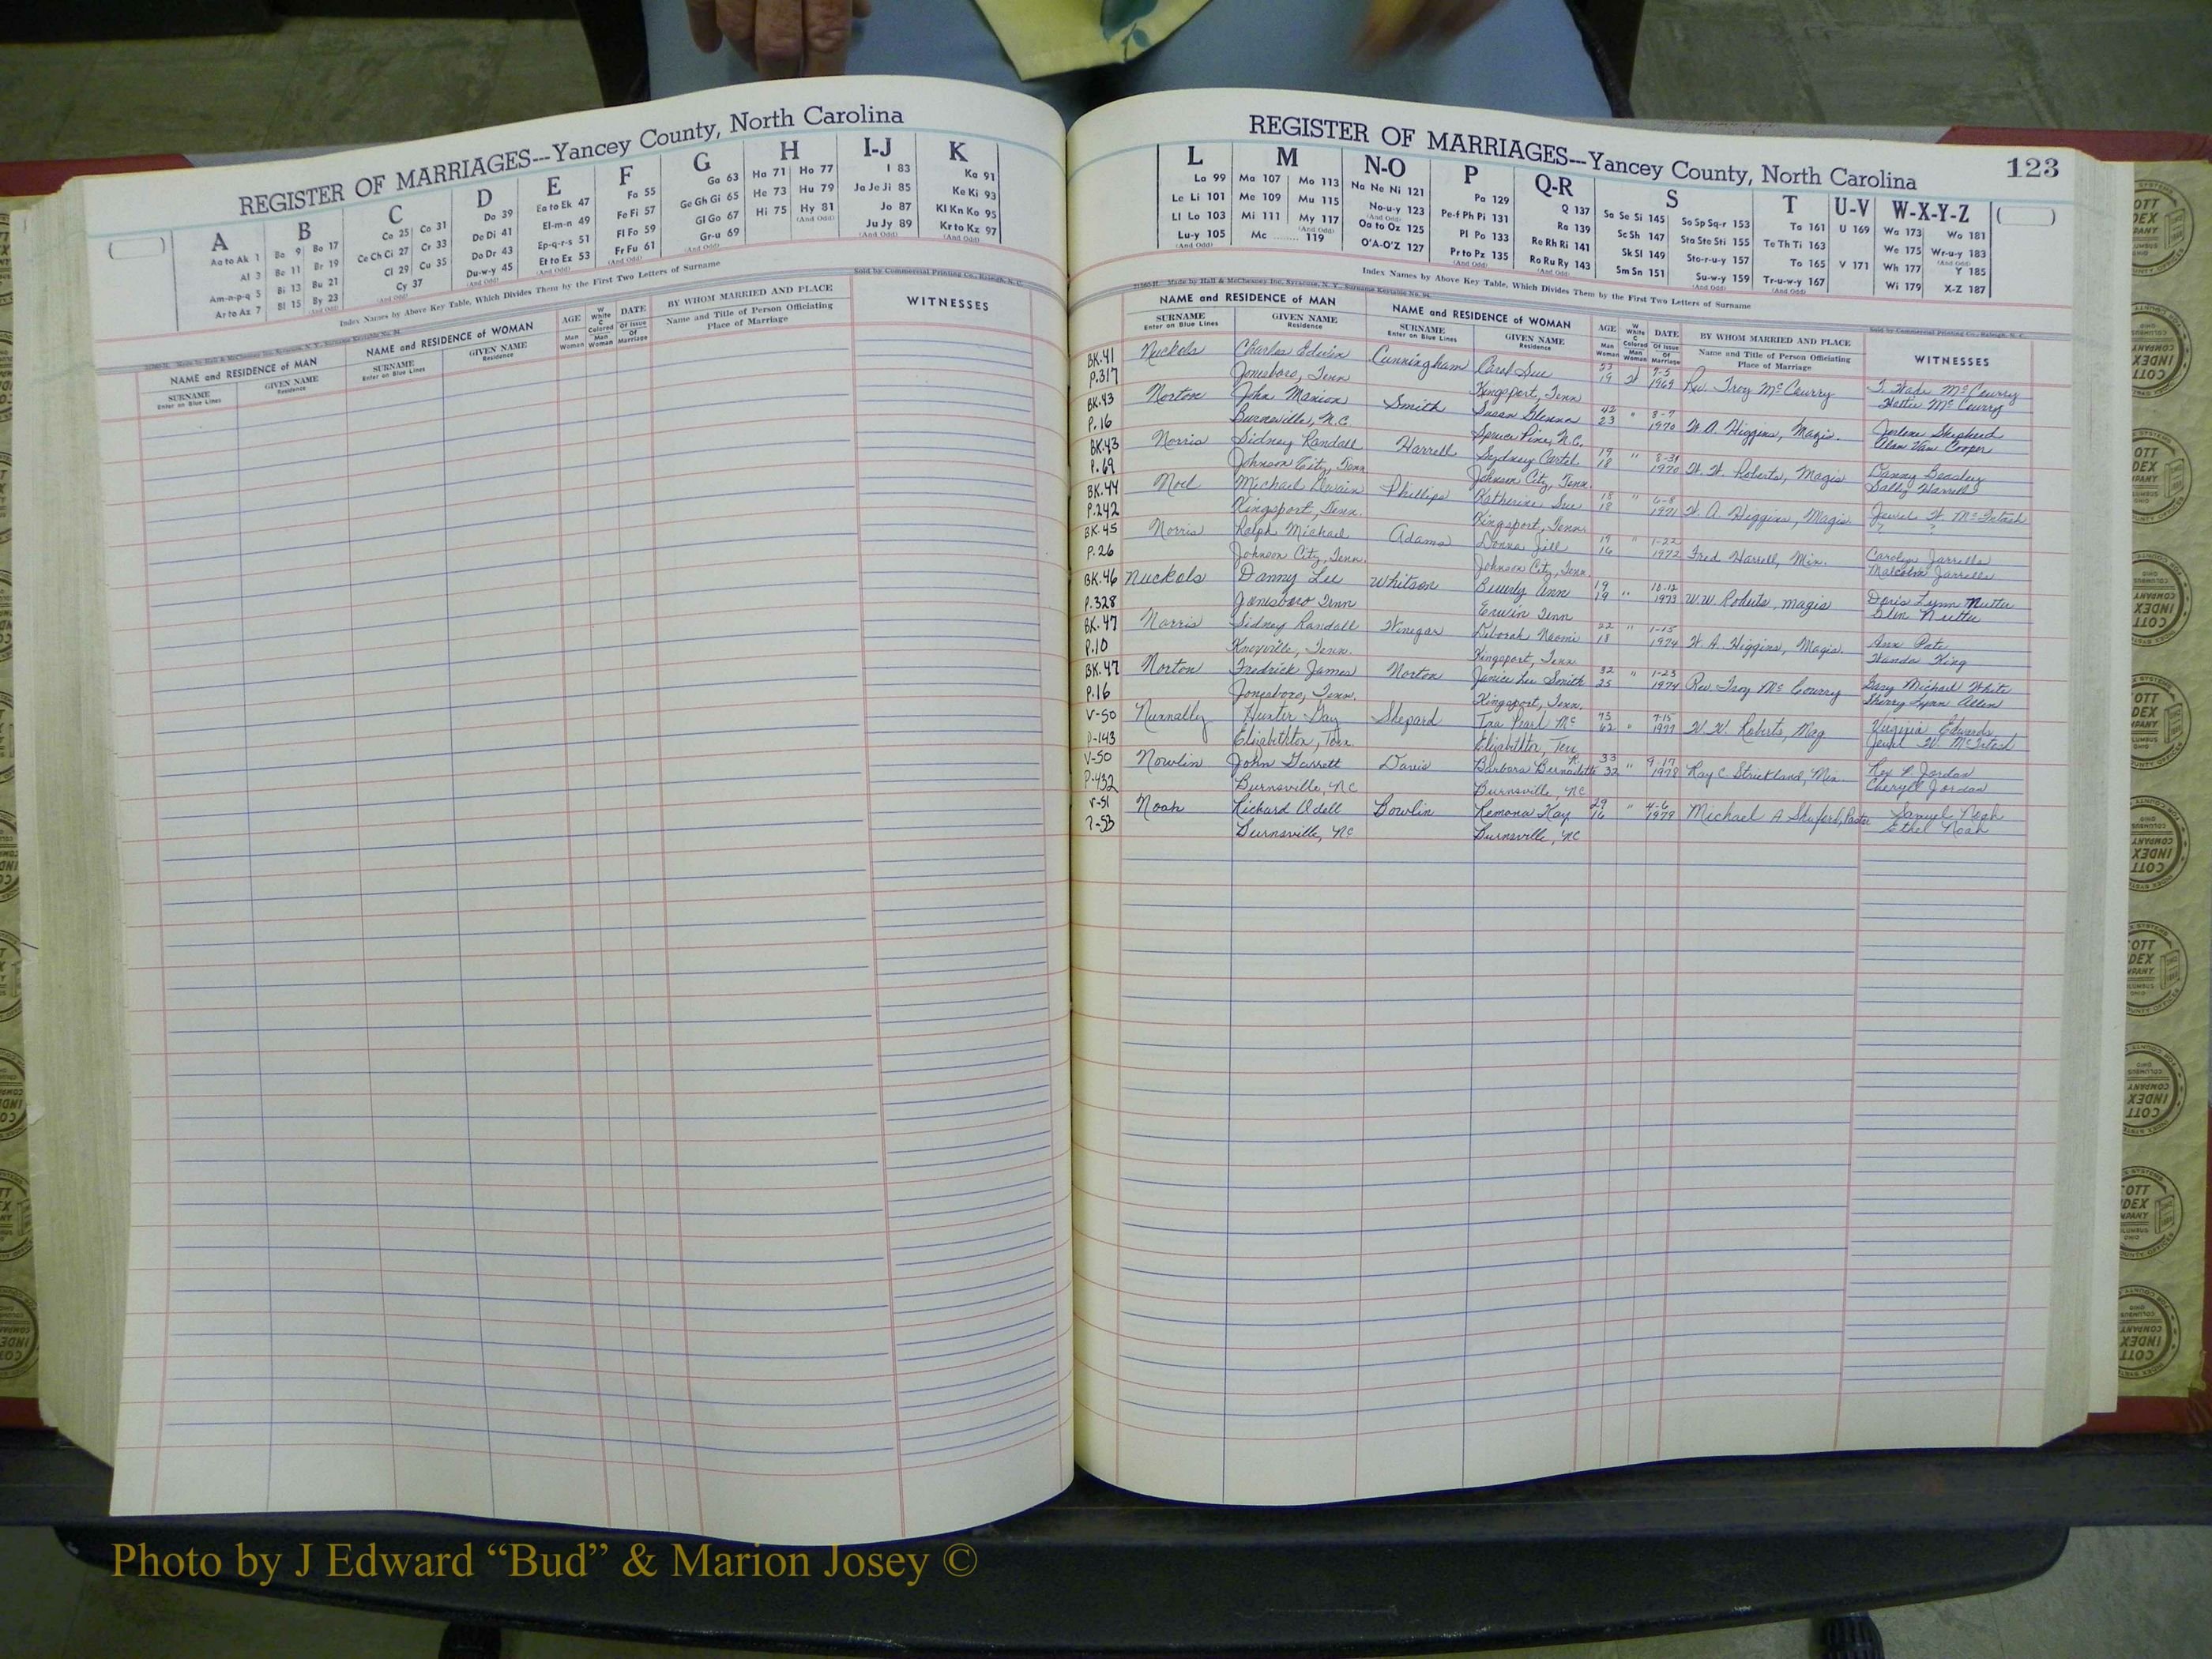 REGISTER OF MARRIAGES---Yancey County, North Carolina
A B C D E F G H I-J K
Aa to Ak 1
Al 3
Am-n-p-q 5
Ar to Az 7
Ba 9 Bo 17
Be 11 Br 19
Bi 13 Bu 21
Bl 15 By 23
Ca 25 Co 31
Ce Ch Ci 27 Cr 33
Cl 29 Cu 35
Cy 37
Da 39
De Di 41
Do Dr 43
Du-w-y 45
Ea to Ek 47
El-m-n 49
Ep-q-r-s 51
Et to Ez 53
Fa 55
Fe Fi 57
Fl Fo 59
Fr Fu 61
Ga 63
Ge Gh Gi 65
Gl Go 67
Gr-u 69
Ha 71 Ho 77
He 73 Hu 79
Hi 75 Hy 81
I 83
Ja Je Ji 85
Jo 87
Ju Jy 89
Ka 91
Ke Ki 93
Kl Kn Ko 95
Kr to Kz 97
Index Names by Above Key Table, Which Divides Them by the First Two Letters of Surname
Sold by Commercial Printing Co., Raleigh, N. C.
NAME and RESIDENCE of MAN
SURNAME Enter on Blue Lines
GIVEN NAME Residence
NAME and RESIDENCE of WOMAN
SURNAME Enter on Blue Lines
GIVEN NAME Residence
AGE Man Woman
W White C Colored Man Woman
DATE Of Issue Of Marriage
BY WHOM MARRIED AND PLACE
Name and Title of Person Officiating
Place of Marriage
WITNESSES
REGISTER OF MARRIAGES---Yancey County, North Carolina 123
L M N-O P Q-R S T U-V W-X-Y-Z
La 99
Le Li 101
Ll Lo 103
Lu-y 105
Ma 107 Mo 113
Me 109 Mu 115
Mi 111 My 117
Mc 119
Na Ne Ni 121
No-u-y 123
Oa to Oz 125
O'A-O'Z 127
Pa 129
Pe-f Ph Pi 131
Pl Po 133
Pr to Pz 135
Q 137
Ra 139
Re Rh Ri 141
Ro Ru Ry 143
Sa Se Si 145 So Sp Sq-r 153
Sc Sh 147 Sta Ste Sti 155
Sk Sl 149 Sto-r-u-y 157
Sm Sn 151 Su-w-y 159
Ta 161
Te Th Ti 163
To 165
Tr-u-w-y 167
U 169
V 171
Wa 173 Wo 181
We 175 Wr-u-y 183
Wh 177 Y 185
Wi 179 X-Z 187
Index Names by Above Key Table, Which Divides Them by the First Two Letters of Surname
Made by Hall & McChesney, Inc, Syracuse, N. Y.
Sold by Commercial Printing Co., Raleigh, N. C.
NAME and RESIDENCE of MAN
SURNAME Enter on Blue Lines
GIVEN NAME Residence
NAME and RESIDENCE of WOMAN
SURNAME Enter on Blue Lines
GIVEN NAME Residence
AGE Man Woman
W White C Colored Man Woman
DATE Of Issue Of Marriage
BY WHOM MARRIED AND PLACE
Name and Title of Person Officiating
Place of Marriage
WITNESSES
BK.41 Nuckels Charles Edwin Cunningham Carol Sue 23 W 7-5 Rev Troy McCurry T. Wade McCurry
P.317 Jonesboro, Tenn Kingsport, Tenn 19 1969 Hattie McCurry
BK.43 Norton John Marion Smith Susan Glenna 42 " 8-7 W. A. Higgins, Magis. Jerlene Shepherd
P.16 Burnsville, N.C. Spruce Pine, N.C. 23 1970 Alan Van Cooper
BK.43 Norris Sidney Randall Harrell Sydney Cartel 19 " 8-31 W. W. Roberts, Magis Danny Beasley
P.69 Johnson City, Tenn Johnson City, Tenn. 18 1970 Sally Harrell
BK.44 Noel Michael Dwain Phillips Katherine Sue 18 " 6-8 W. A. Higgins, Magis. Jewel W. McIntosh
P.242 Kingsport, Tenn. Kingsport, Tenn. 18 1971 ? ?
BK.45 Norris Ralph Michael Adams Donna Jill 19 " 1-22 Fred Harrell, Min. Carolyn Jarrells
P.26 Johnson City, Tenn. Johnson City, Tenn. 16 1972 Malcolm Jarrells
BK.46 Nuckols Danny Lee Whitson Beverly Ann 19 " 10-12 W.W. Roberts, Magis Doris Lynn Nutter
P.328 Jonesboro Tenn Erwin Tenn 19 1973 Glen Nutter
BK.47 Norris Sidney Randall Vinegar Deborah Naomi 22 " 1-15 W. A. Higgins, Magis. Ann Pate
P.10 Knoxville, Tenn. Kingsport, Tenn 18 1974 Wanda King
BK.47 Norton Fredrick James Norton Janice Lee Smith 32 " 1-23 Rev. Troy McCourry Gary Michael White
P.16 Jonesboro, Tenn. Kingsport, Tenn. 25 1974 Sherry Lynn Allen
V-50 Nunnally Hunter Gay Shepard Ina Pearl Mc 75 " 7-15 W. W. Roberts, Mag Virginia Edwards
P-143 Elizabethton, Tenn. Elizabethton, Ten 62 1977 Jewel W. McIntosh
V-50 Nowlin John Garrett Davis Barbara Bernadette R. 33 " 9-17 Ray C. Strickland, Min. Rex P. Jordan
P-432 Burnsville, NC Burnsville, NC 32 1978 Cheryll Jordan
V-51 Noah Richard Odell Bowlin Remona Kay 29 " 4-6 Michael A Shuford, Pastor Samuel Noah
?-53 Burnsville, NC Burnsville, NC 16 1979 Ethel Noah
Photo by J Edward “Bud” & Marion Josey ©